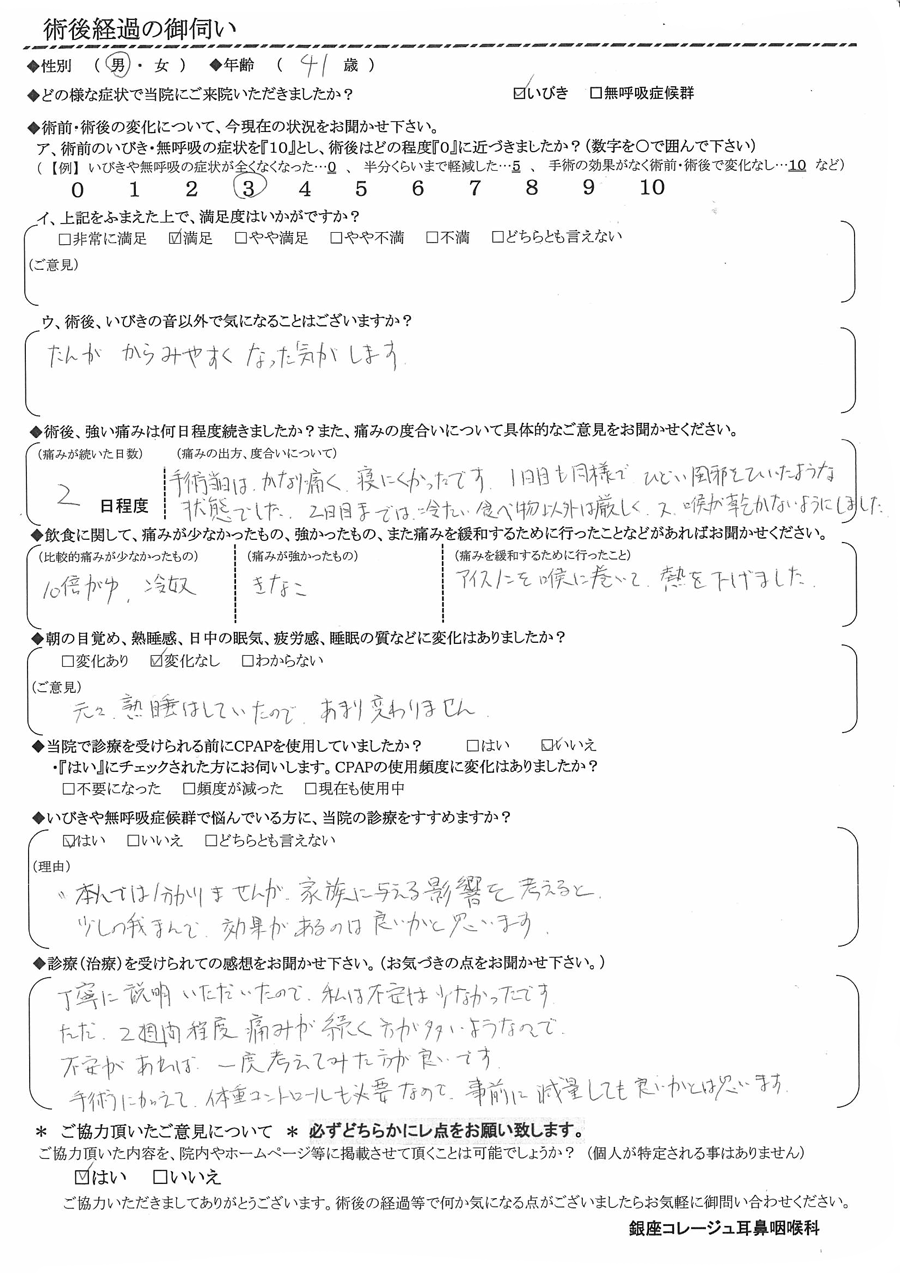 術後経過の御伺い
◆性別 （ 男 ・ 女 ） ◆年齢 （ 41 歳 ）
◆どの様な症状で当院にご来院いただきましたか？ ☑いびき □無呼吸症候群
◆術前・術後の変化について、今現在の状況をお聞かせ下さい。
ア、術前のいびき・無呼吸の症状を『10』とし、術後はどの程度『0』に近づきましたか？（数字を○で囲んで下さい）
（【例】いびきや無呼吸の症状が全くなくなった…0 、 半分くらいまで軽減した…5 、 手術の効果がなく術前・術後で変化なし…10 など）
0 1 2 3 4 5 6 7 8 9 10
イ、上記をふまえた上で、満足度はいかがですか？
□非常に満足 ☑満足 □やや満足 □やや不満 □不満 □どちらとも言えない
（ご意見）
ウ、術後、いびきの音以外で気になることはございますか？
たんが からみやすく なった気がします.
◆術後、強い痛みは何日程度続きましたか？また、痛みの度合いについて具体的なご意見をお聞かせください。
（痛みが続いた日数） （痛みの出方、度合いについて）
手術当日は、かなり痛く、寝にくかったです. 1日目も同様で ひどい風邪をひいたような
2 日程度 状態でした. 2日目までは、冷たい食べ物以外は厳しく、又、喉が乾かないようにしました
◆飲食に関して、痛みが少なかったもの、強かったもの、また痛みを緩和するために行ったことなどがあればお聞かせください。
（比較的痛みが少なかったもの） （痛みが強かったもの） （痛みを緩和するために行ったこと）
10倍がゆ, 冷奴 きなこ アイスノンを喉に巻いて、熱を下げました.
◆朝の目覚め、熟睡感、日中の眠気、疲労感、睡眠の質などに変化はありましたか？
□変化あり ☑変化なし □わからない
（ご意見）
元々、熟睡はしていたので、あまり変わりません.
◆当院で診療を受けられる前にCPAPを使用していましたか？ □はい ☑いいえ
・『はい』にチェックされた方にお伺いします。CPAPの使用頻度に変化はありましたか？
□不要になった □頻度が減った □現在も使用中
◆いびきや無呼吸症候群で悩んでいる方に、当院の診療をすすめますか？
☑はい □いいえ □どちらとも言えない
（理由）
本人では分かりませんが、家族に与える影響を考えると、
少しの我まんで、効果があるのは良いかと思います.
◆診療（治療）を受けられての感想をお聞かせ下さい。（お気づきの点をお聞かせ下さい。）
丁寧に説明いただいたので、私は不安は少なかったです
ただ、2週間程度痛みが続く方が多いようなので、
不安があれば、一度考えてみた方が良いです.
手術にかえて、体重コントロールも必要なので、事前に減量しても良いかとは思います.
＊ ご協力頂いたご意見について ＊ 必ずどちらかにレ点をお願い致します。
ご協力頂いた内容を、院内やホームページ等に掲載させて頂くことは可能でしょうか？ （個人が特定される事はありません）
☑はい □いいえ
ご協力いただきましてありがとうございます。術後の経過等で何か気になる点がございましたらお気軽に御問い合わせください。
銀座コレージュ耳鼻咽喉科